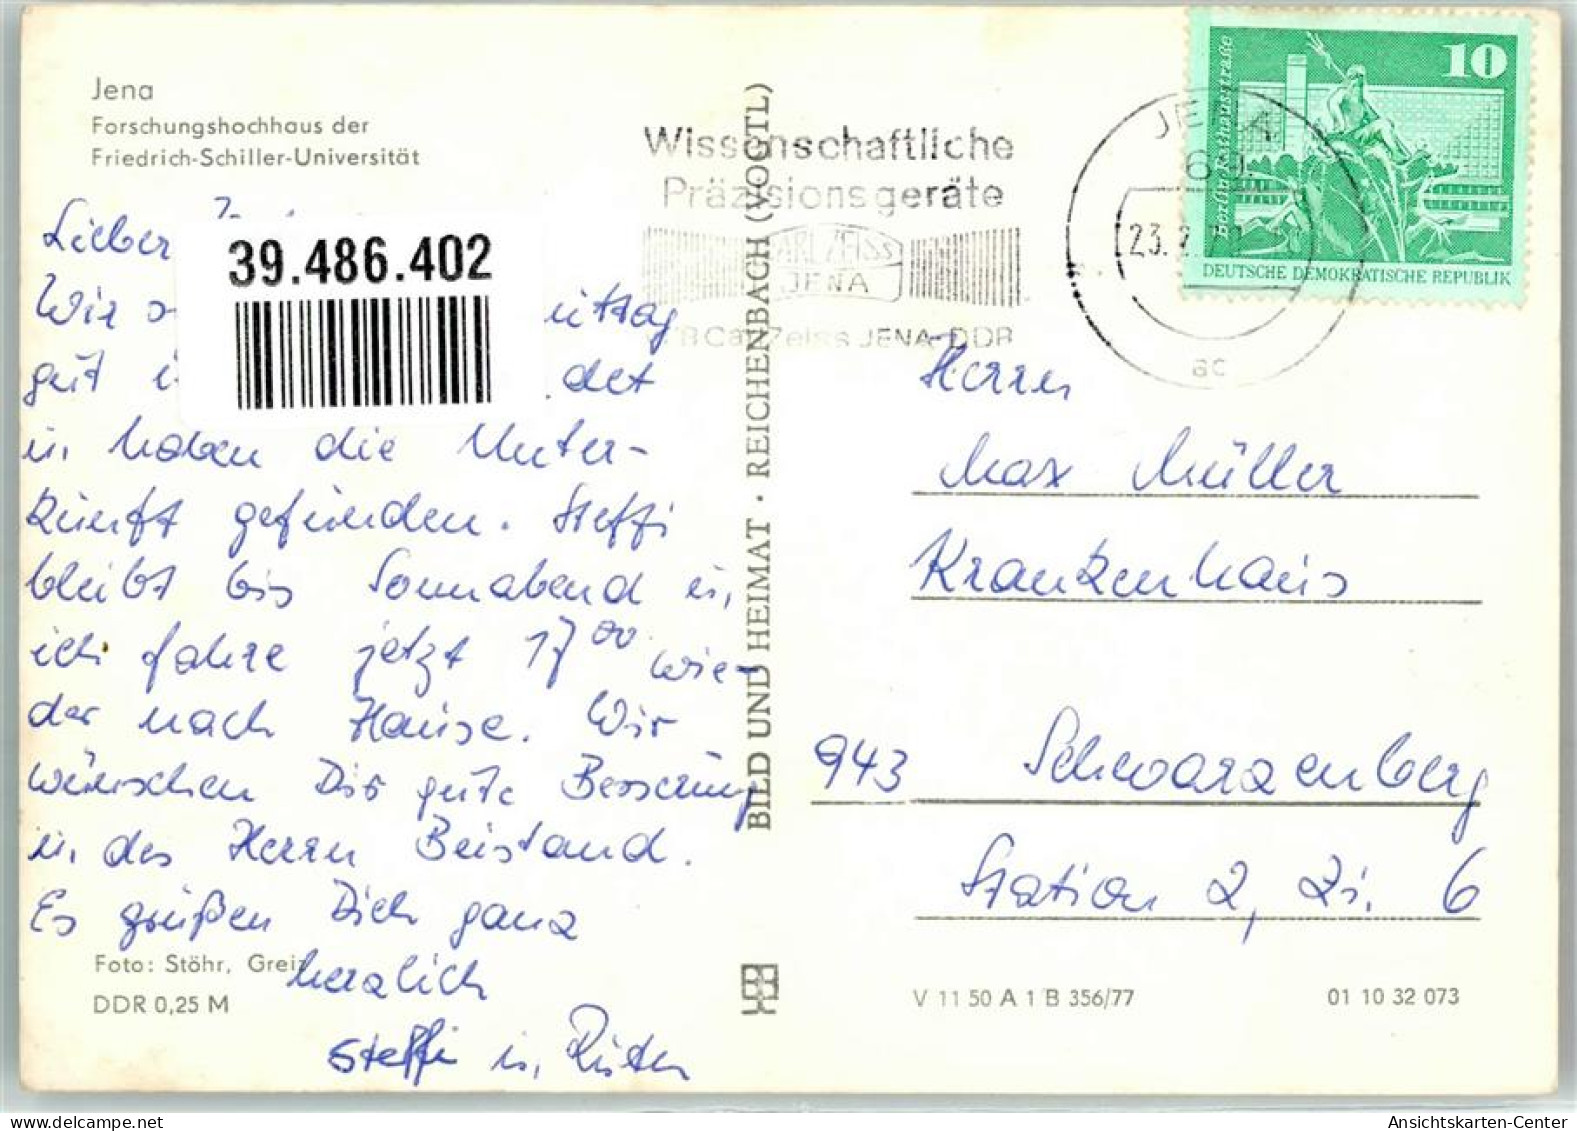 Jena
Forschungshochhaus der
Friedrich-Schiller-Universität
Lieber
39.486.402
Wir
gut
in haben die Unter-
kunft gefunden. Steffi
bleibt bis Sonnabend u.
ich fahre jetzt 17⁰⁰ wie-
der nach Hause. Wir
wünschen Dir gute Besserung
u. des Herrn Beistand.
Es grüßen Dich ganz
herzlich
Steffi u.
Foto: Stöhr, Greiz
DDR 0,25 M
BILD UND HEIMAT · REICHENBACH (VOGTL)
Wissenschaftliche
Präzisionsgeräte
CARL ZEISS
JENA
VEB Carl Zeiss JENA-DDR
JENA
69
23.
ac
10
Berlin, Rathausstraße
DEUTSCHE DEMOKRATISCHE REPUBLIK
Herrn
Max Müller
Krankenhaus
943 Schwarzenberg
Station 2, Zi. 6
V 11 50 A 1 B 356/77
01 10 32 073
Ansichtskarten-Center